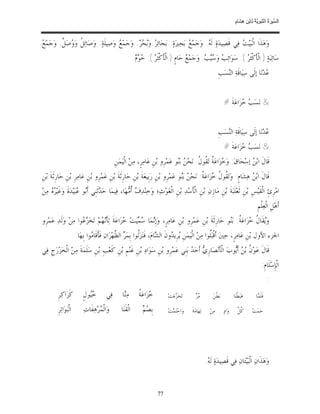 السِّيرَةُ النَّبَوِيَّةُ لِابْنِ هِشَامٍ
وَهَذَا الْبَيْتُ فِي قَصِيدَةٍ لَهُ. وَجَمْعُ بَحِيرَةٍ: بَحَائِرُ وَبُحُرٌ. وَجَمْعُ وَصِيلَةٍ: وَصَائِلُ وَوُصَلٌ. وَجَمْعُ
سَائِبَةٍ (الْأَكْثَرُ): سَوَائِبُ وَسُيَّبٌ. وَجَمْعُ حَامٍ (الْأَكْثَرُ): حُوَّمٌ.
عُدْنَا إلَى سِيَاقَةِ النَّسَبِ
& نَسَبُ خُزَاعَةَ #
عُدْنَا إلَى سِيَاقَةِ النَّسَبِ
& نَسَبُ خُزَاعَةَ #
قَالَ ابْنُ إسْحَاقَ: وَخُزَاعَةُ تَقُولُ: نَحْنُ بَنُو عَمْرِو بْنِ عَامِرٍ، مِنْ الْيَمَنِ.
قَالَ ابْنُ هِشَامٍ: وَتَقُولُ خُزَاعَةُ: نَحْنُ بَنُو عَمْرِو بْنِ رَبِيعَةَ بْنِ حَارِثَةَ بْنِ عَمْرِو بْنِ عَامِرِ بْنِ حَارِثَةَ بْنِ
امْرِئِ الْقَيْسِ بْنِ ثَعْلَبَةَ بْنِ مَازِنِ بْنِ الْأَسْدِ بْنِ الْغَوْثِ؛ وَخِنْدِفُ أُمُّهَا، فِيمَا حَدَّثَنِي أَبُو عُبَيْدَةَ وَغَيْرُهُ مِنْ
أَهْلِ الْعِلْمِ.
وَيُقَالُ خُزَاعَةُ: بَنُو حَارِثَةَ بْنِ عَمْرِو بْنِ عَامِرٍ، وَإِنَّمَا سُمِّيَتْ خُزَاعَةَ لِأَنَّهُمْ تَخَزَّعُوا مِنْ وَلَدِ عَمْرِو
الجزء الأول بْنِ عَامِرٍ، حِينَ أَقْبَلُوا مِنْ الْيَمَنِ يُرِيدُونَ الشَّامَ، فَنَزَلُوا بِمَرِّ الظَّهْرَانِ فَأَقَامُوا بِهَا.
قَالَ عَوْنُ بْنُ أَيُّوبَ الْأَنْصَارِيُّ أَحَدُ بَنِي عَمْرِو بْنِ سَوَادِ بْنِ غَنْمِ بْنِ كَعْبِ بْنِ سَلَمَةَ مِنْ الْخَزْرَجِ فِي
الْإِسْلَامِ:
فَلَمَّا هَبَطْنَا بَطْنَ مَرٍّ تَخَزَّعَتْ خُزَاعَةُ مِنَّا فِي خُيُولٍ كَرَاكِرِ
حَمَتْ كُلَّ وَادٍ مِنْ تِهَامَةَ وَاحْتَمَتْ بِصُمِّ الْقَنَا وَالْمُرْهِفَاتِ الْبَوَاتِرِ
وَهَذَانِ الْبَيْتَانِ فِي قَصِيدَةٍ لَهُ.
77